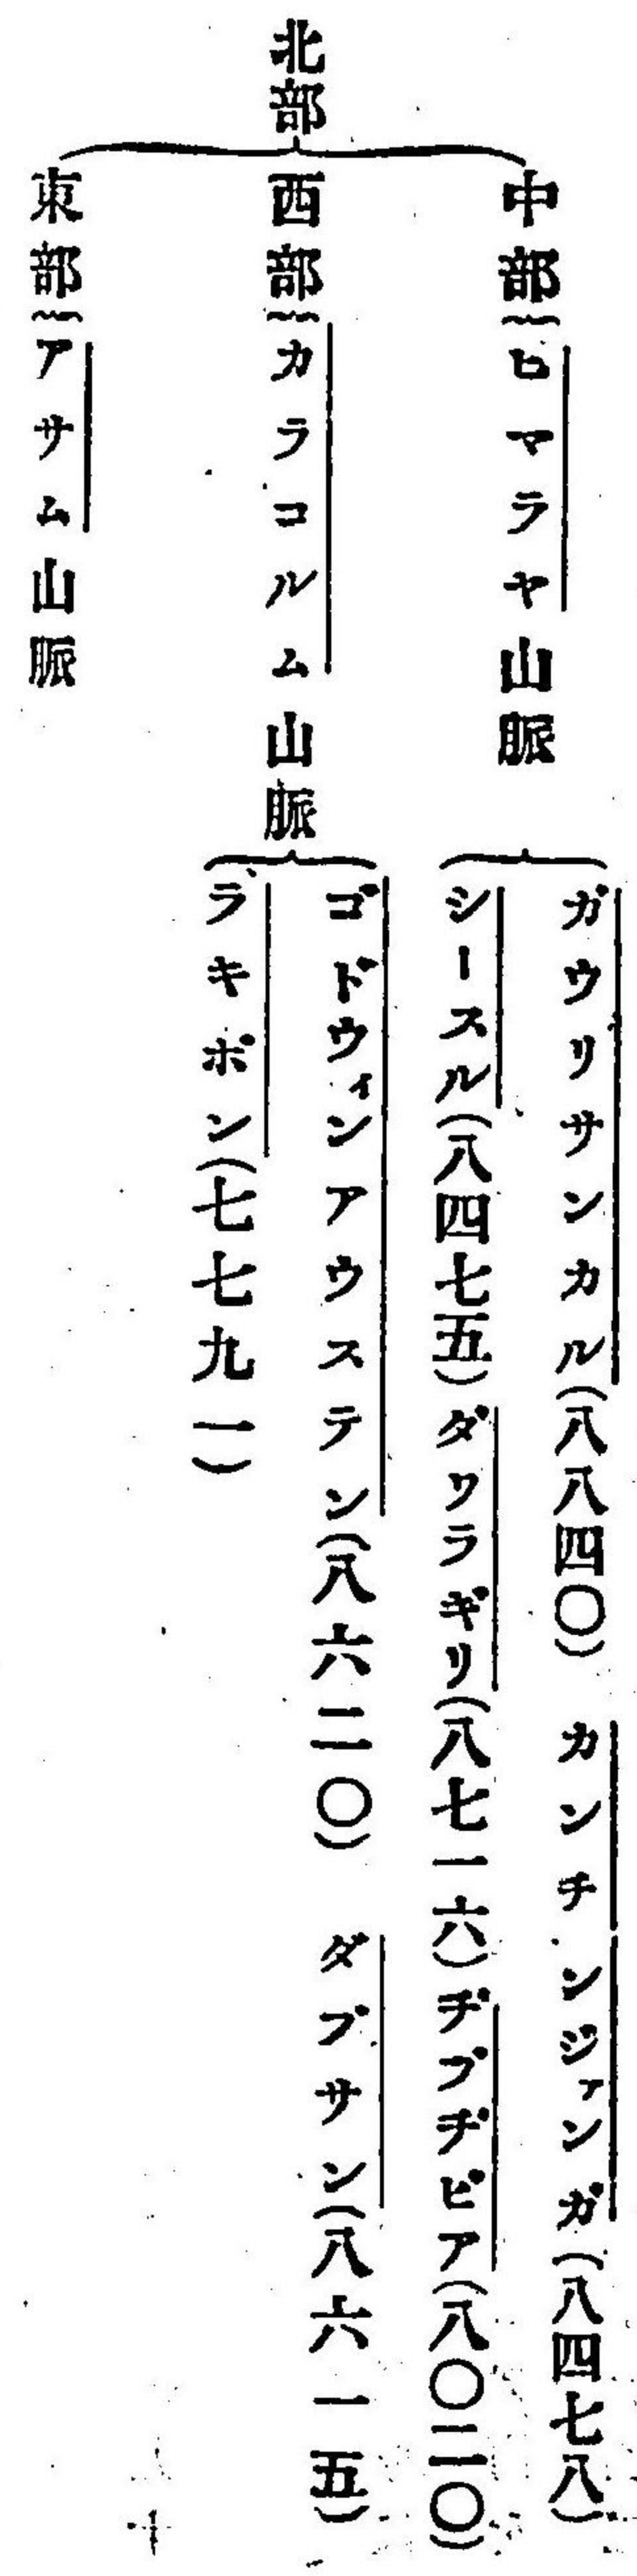 北部
中部
ヒマラヤ山脈
ガウリサンカル(八八四〇) カンチンジァンガ(八四七八)
シースル(八四七五)ダワラギリ(八七一六)ヂブヂビア(八〇二〇)
西部
カラコルム山脈
ゴドウィンアウステン(八六二〇) ダブサン(八六一五)
ラキポン(七七九一)
東部
アサム山脈